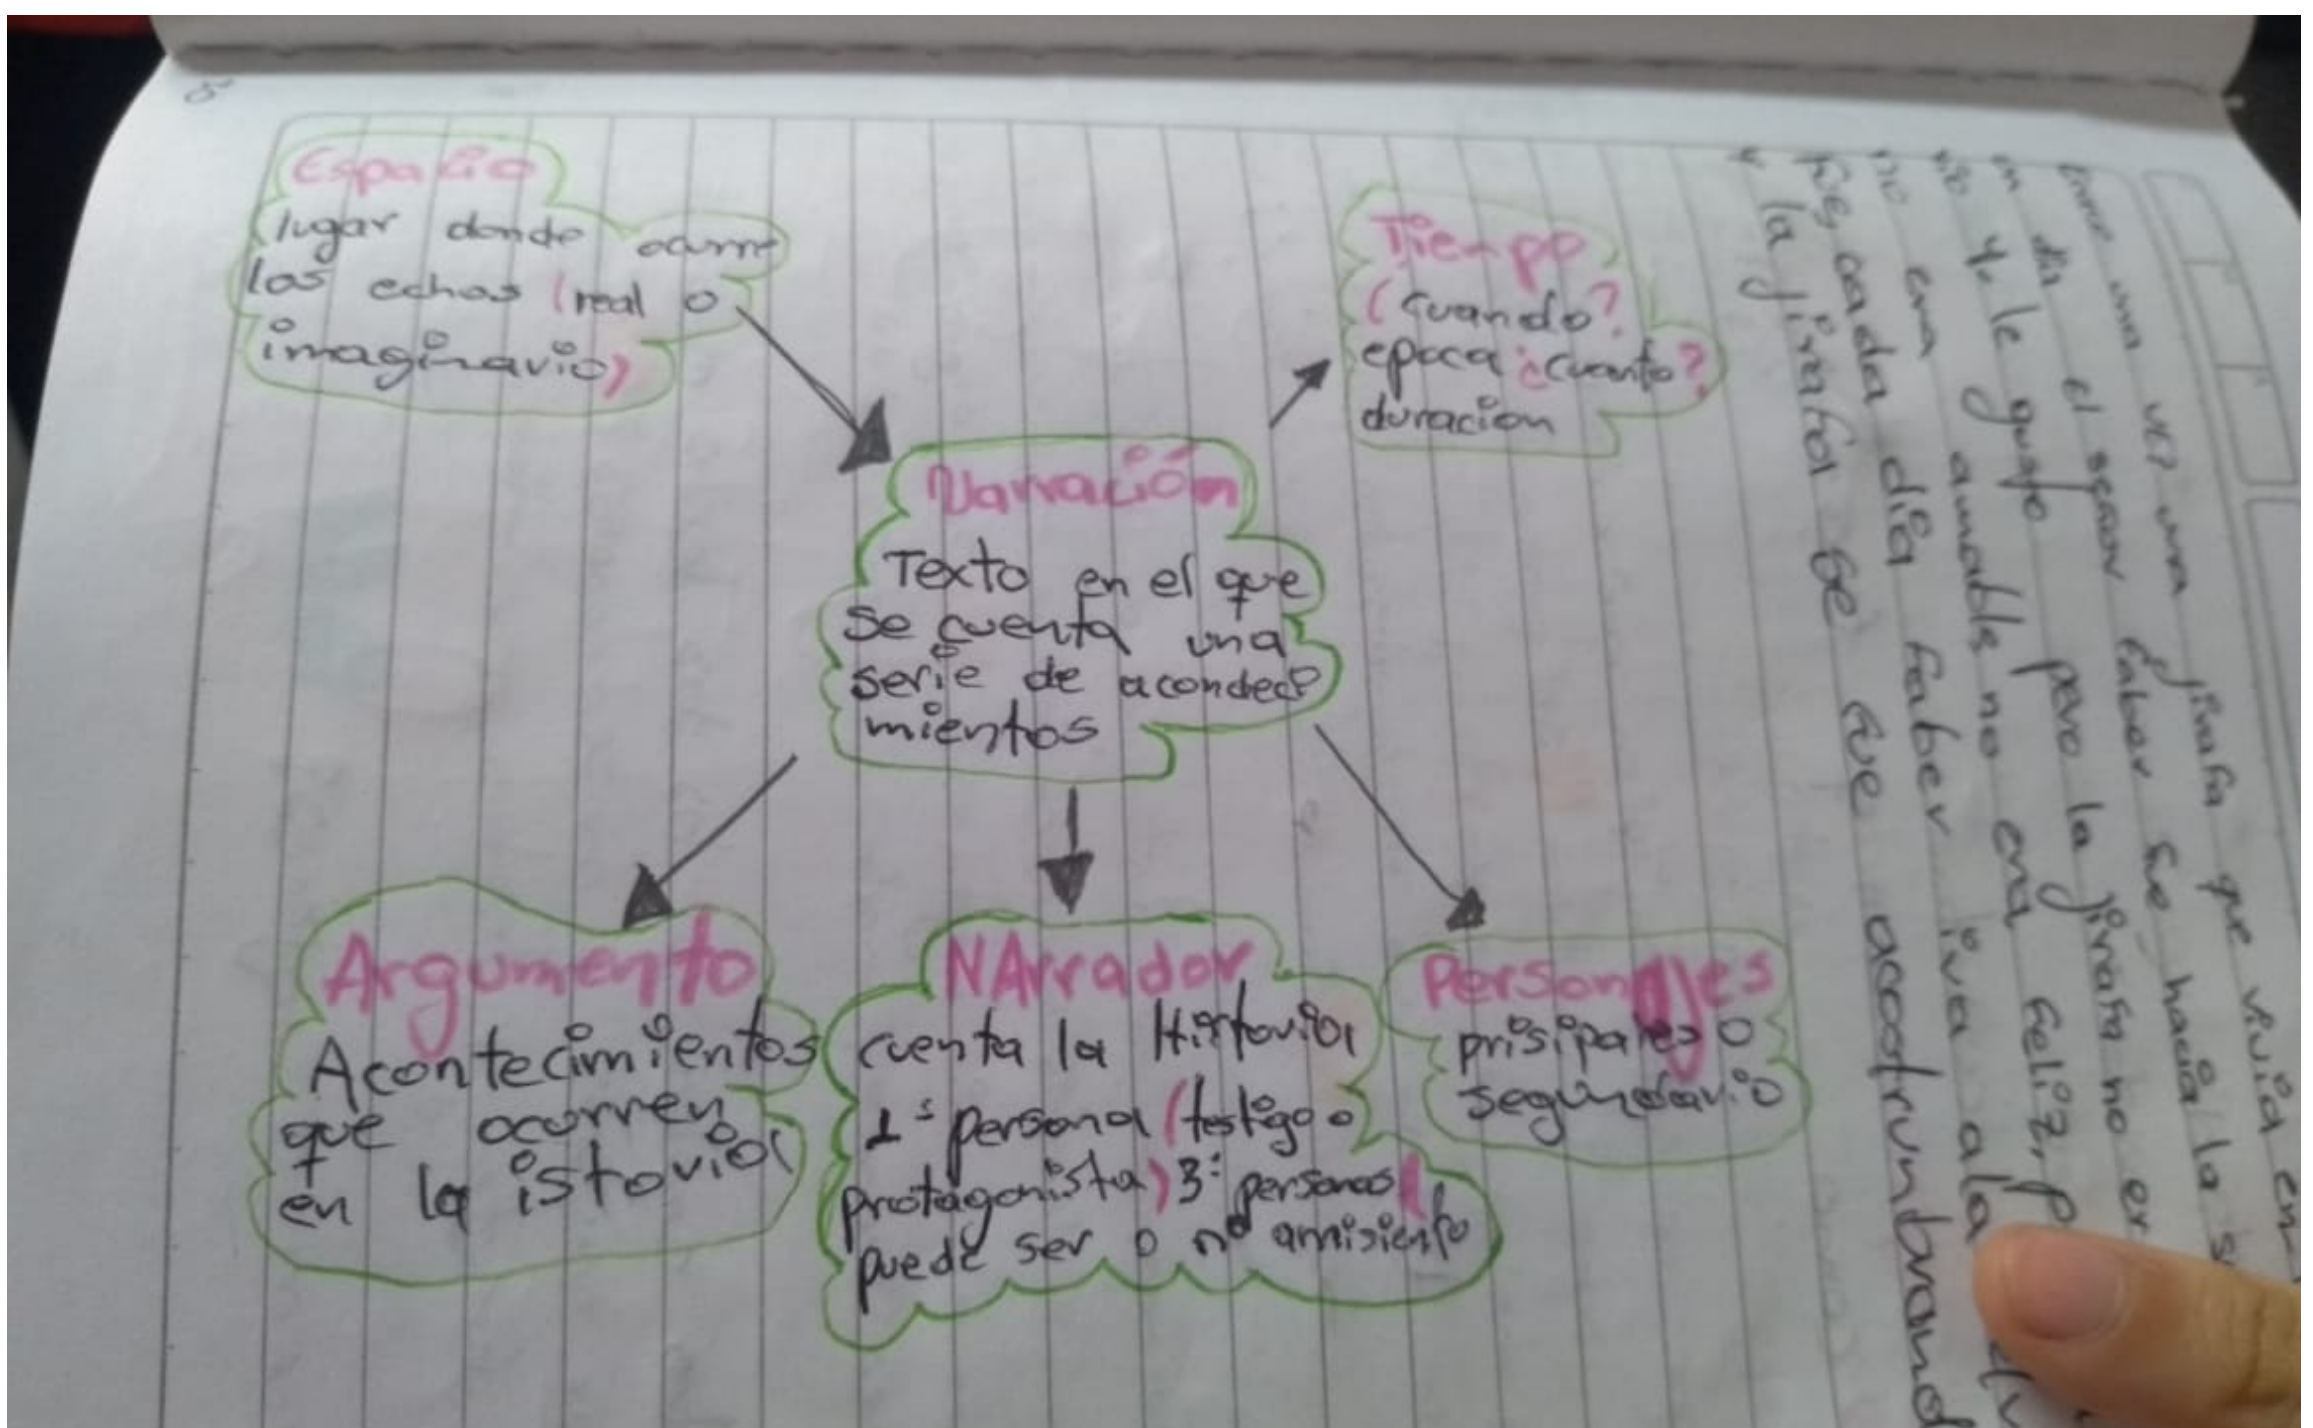 Espacio
lugar donde ocurre
los echos (real o
imaginario)
Tiempo
(cuando?
epoca ¿cuanto?
duracion
Narración
Texto en el que
se cuenta una
serie de acondece
mientos
Argumento
Acontecimientos
que ocurren
en la istoria
NArrador
cuenta la Historia
1ª persona (testigo o
protagonista) 3ª persona(
puede ser o no amisiento
Personajes
prisipales o
segundario
una vez una jirafa que vivia en
dia el señor Faber fue hacia la
y le gusto pero la jirafa no er
no era amable no era feliz, p
cada dia Faber iva ala
y la jirafa se fue acostrumbrand